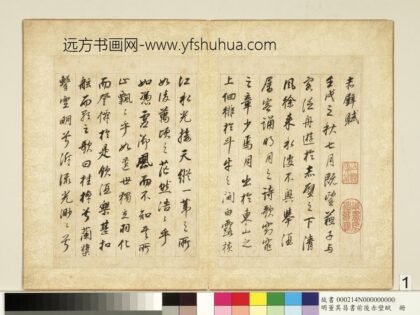 远方书画网-www.yfshuhua.com
赤壁賦
壬戌之秋七月既望蘇子與
客泛舟遊於赤壁之下清
風徐來水波不興舉酒
屬客誦明月之詩歌窈窕
之章少焉月出於東山之
上徘徊於斗牛之間白露橫
江水光接天縱一葦之所
如凌萬頃之茫然浩浩乎
如馮虛御風而不知其所
止飄飄乎如遺世獨立羽化
而登仙於是飲酒樂甚扣
舷而歌之歌曰桂棹兮蘭槳
擊空明兮泝流光渺渺兮
1
故書 000214N000000000
明董其昌書前後赤壁賦 冊